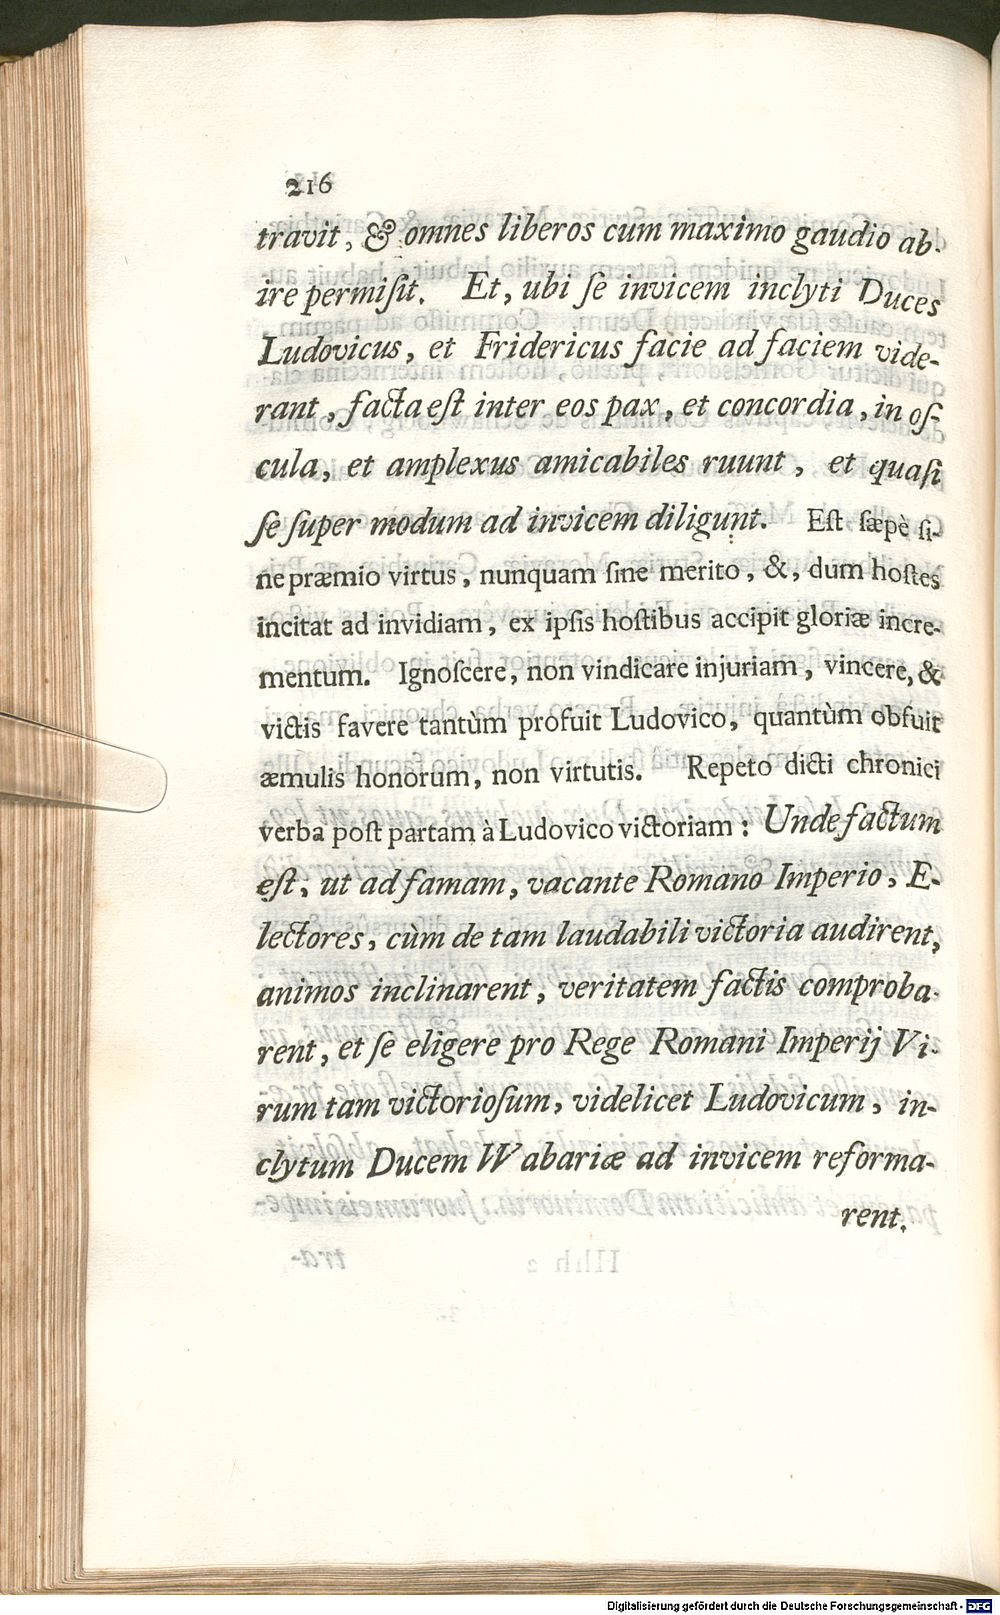 216
travit, & omnes liberos cum maximo gaudio ab-
ire permiſit. Et, ubi ſe invicem inclyti Duces
Ludovicus, et Fridericus facie ad faciem vide-
rant, facta eſt inter eos pax, et concordia, in oſ-
cula, et amplexus amicabiles ruunt, et quaſi
ſe ſuper modum ad invicem diligunt. Eſt ſæpè ſi-
ne præmio virtus, nunquam ſine merito, &, dum hoſtes
incitat ad invidiam, ex ipſis hoſtibus accipit gloriæ incre-
mentum. Ignoſcere, non vindicare injuriam, vincere, &
victis favere tantùm profuit Ludovico, quantùm obfuit
æmulis honorum, non virtutis. Repeto dicti chronici
verba poſt partam à Ludovico victoriam: Unde factum
eſt, ut ad famam, vacante Romano Imperio, E-
lectores, cùm de tam laudabili victoria audirent,
animos inclinarent, veritatem factis comproba-
rent, et ſe eligere pro Rege Romani Imperij Vi-
rum tam victorioſum, videlicet Ludovicum, in-
clytum Ducem Wabariæ ad invicem reforma-
rent.
Digitalisierung gefördert durch die Deutsche Forschungsgemeinschaft - DFG